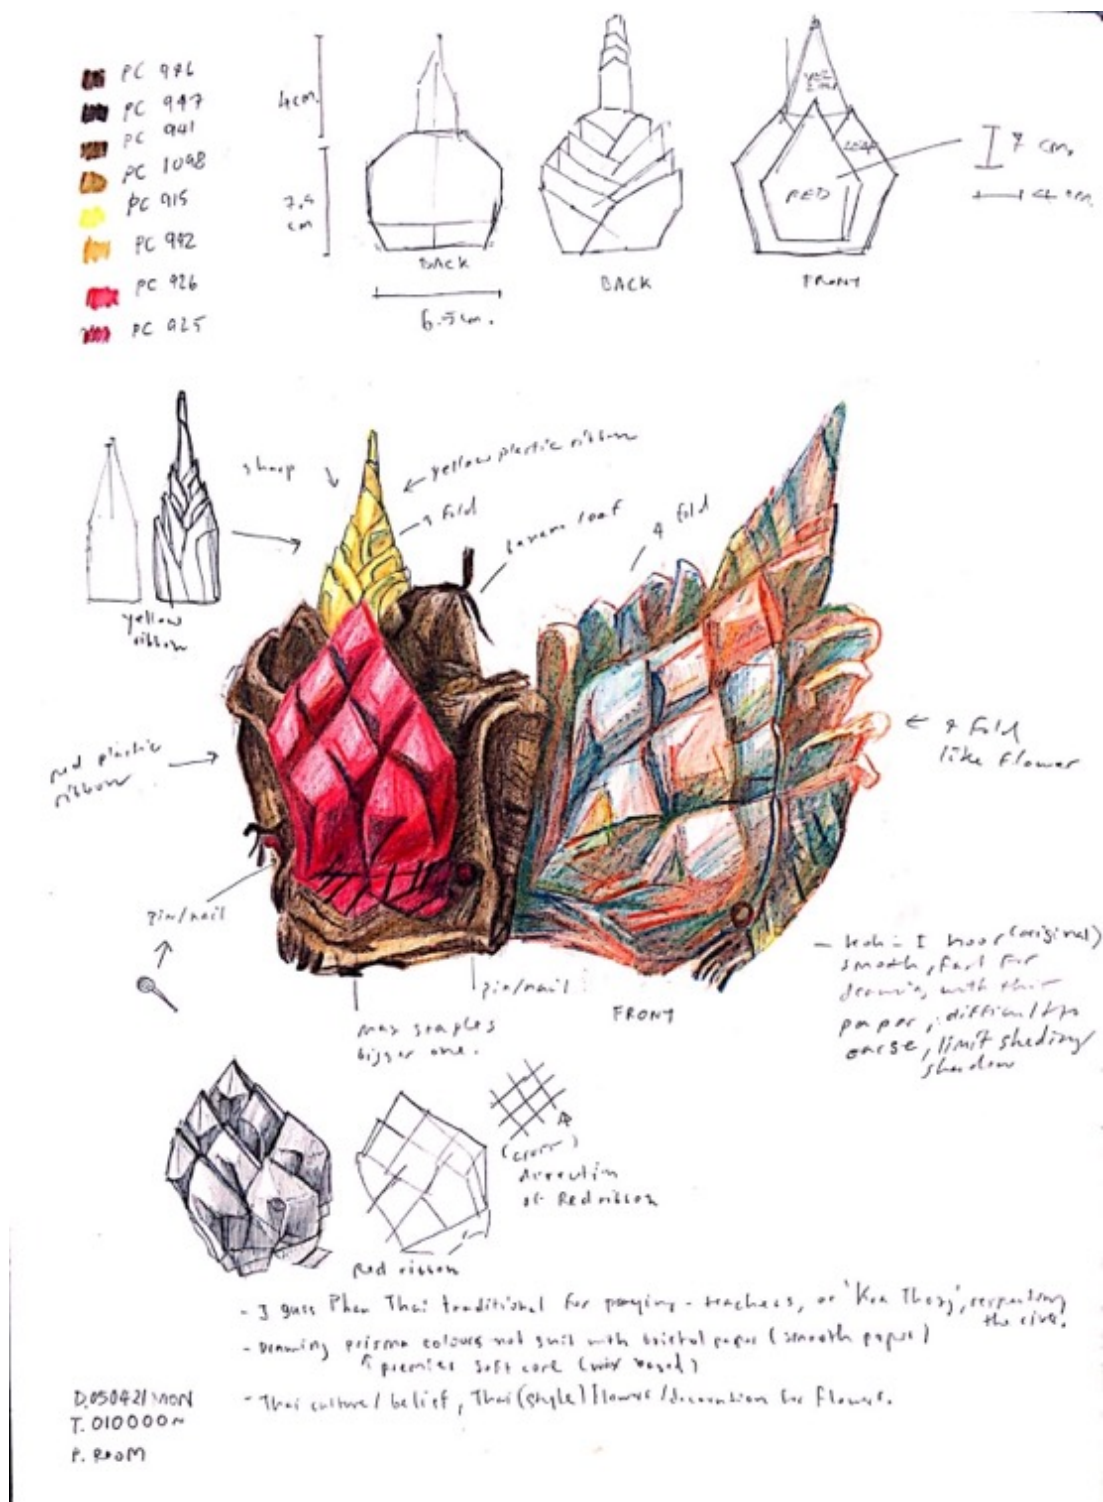 PC 946
PC 947
PC 941
PC 1098
PC 915
PC 942
PC 926
PC 925
4cm.
7.5
cm
BACK
6.5cm.
BACK
RED
FRONT
7 cm.
4 cm.
sharp
yellow plastic ribbon
fold
4 fold
yellow
ribbon
red plastic
ribbon
fold
like flower
pin/nail
pin/nail
max staples
bigger one.
FRONT
(original)
smooth, fast for
drawing with this
paper, difficult to
limit shading
shadow
(cross)
direction
of Red ribbon
Red ribbon
- I guess Phan Thai traditional for praying - teachers, or respecting
the river.
- Drawing prisma colours not suit with bristol paper (smooth paper)
premier soft core (wax based)
- Thai culture/belief, Thai (style) flower/decoration for flowers.
D.050421MON
T. 010000
P. ROOM